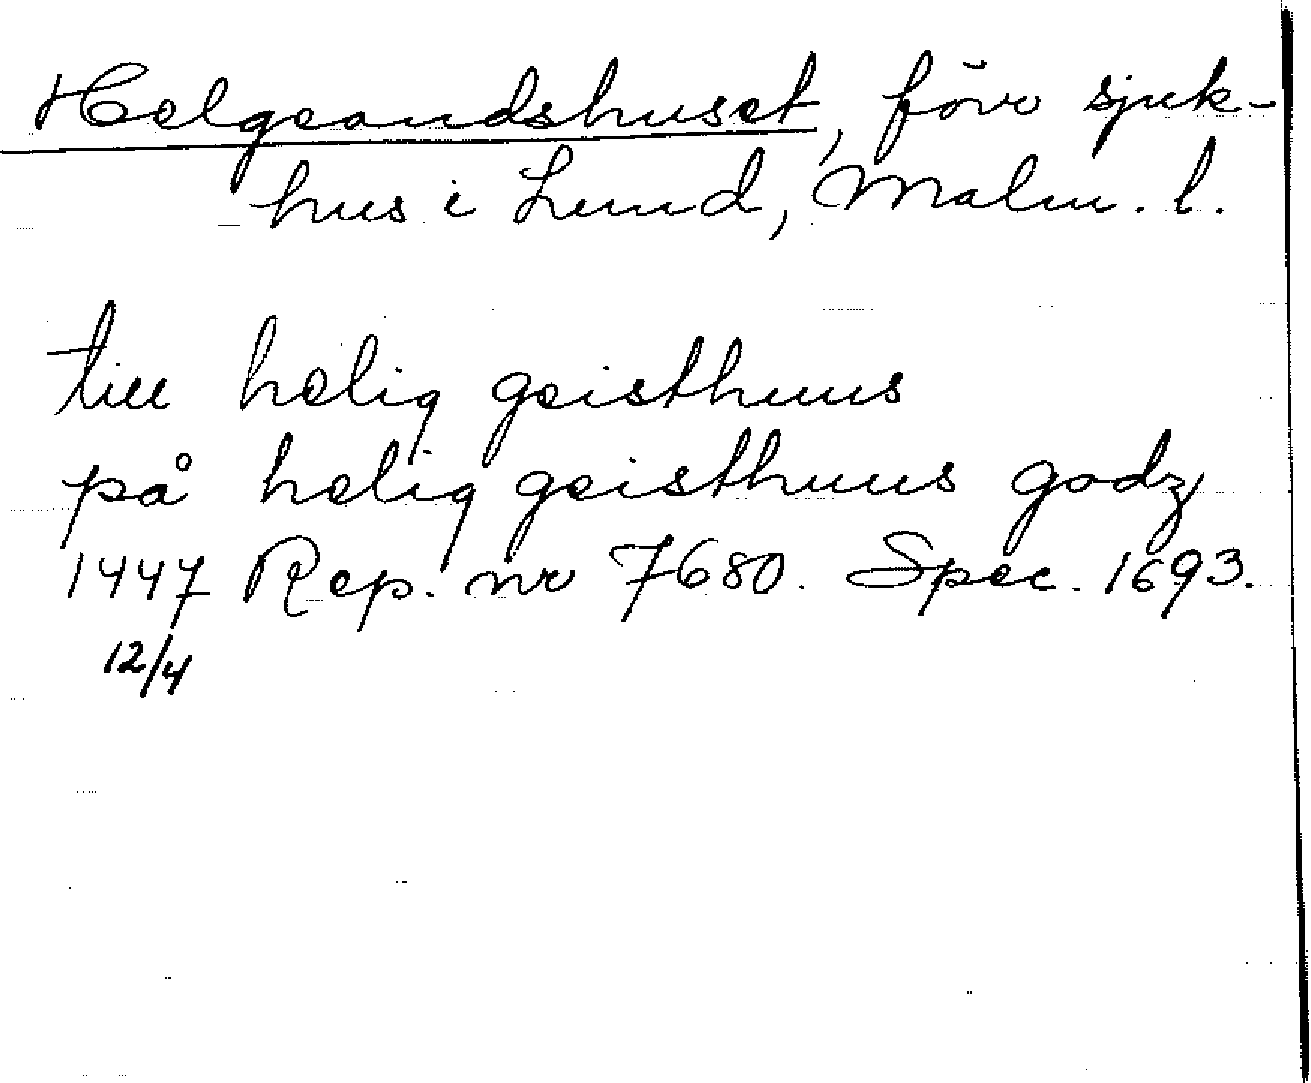 Helgeandshuset, förr sjuk-
hus i Lund, Malm. l.
till helig geisthuus
på helig geisthuus godz
1447 Rep. nr 7680. Spec. 1693.
12/4